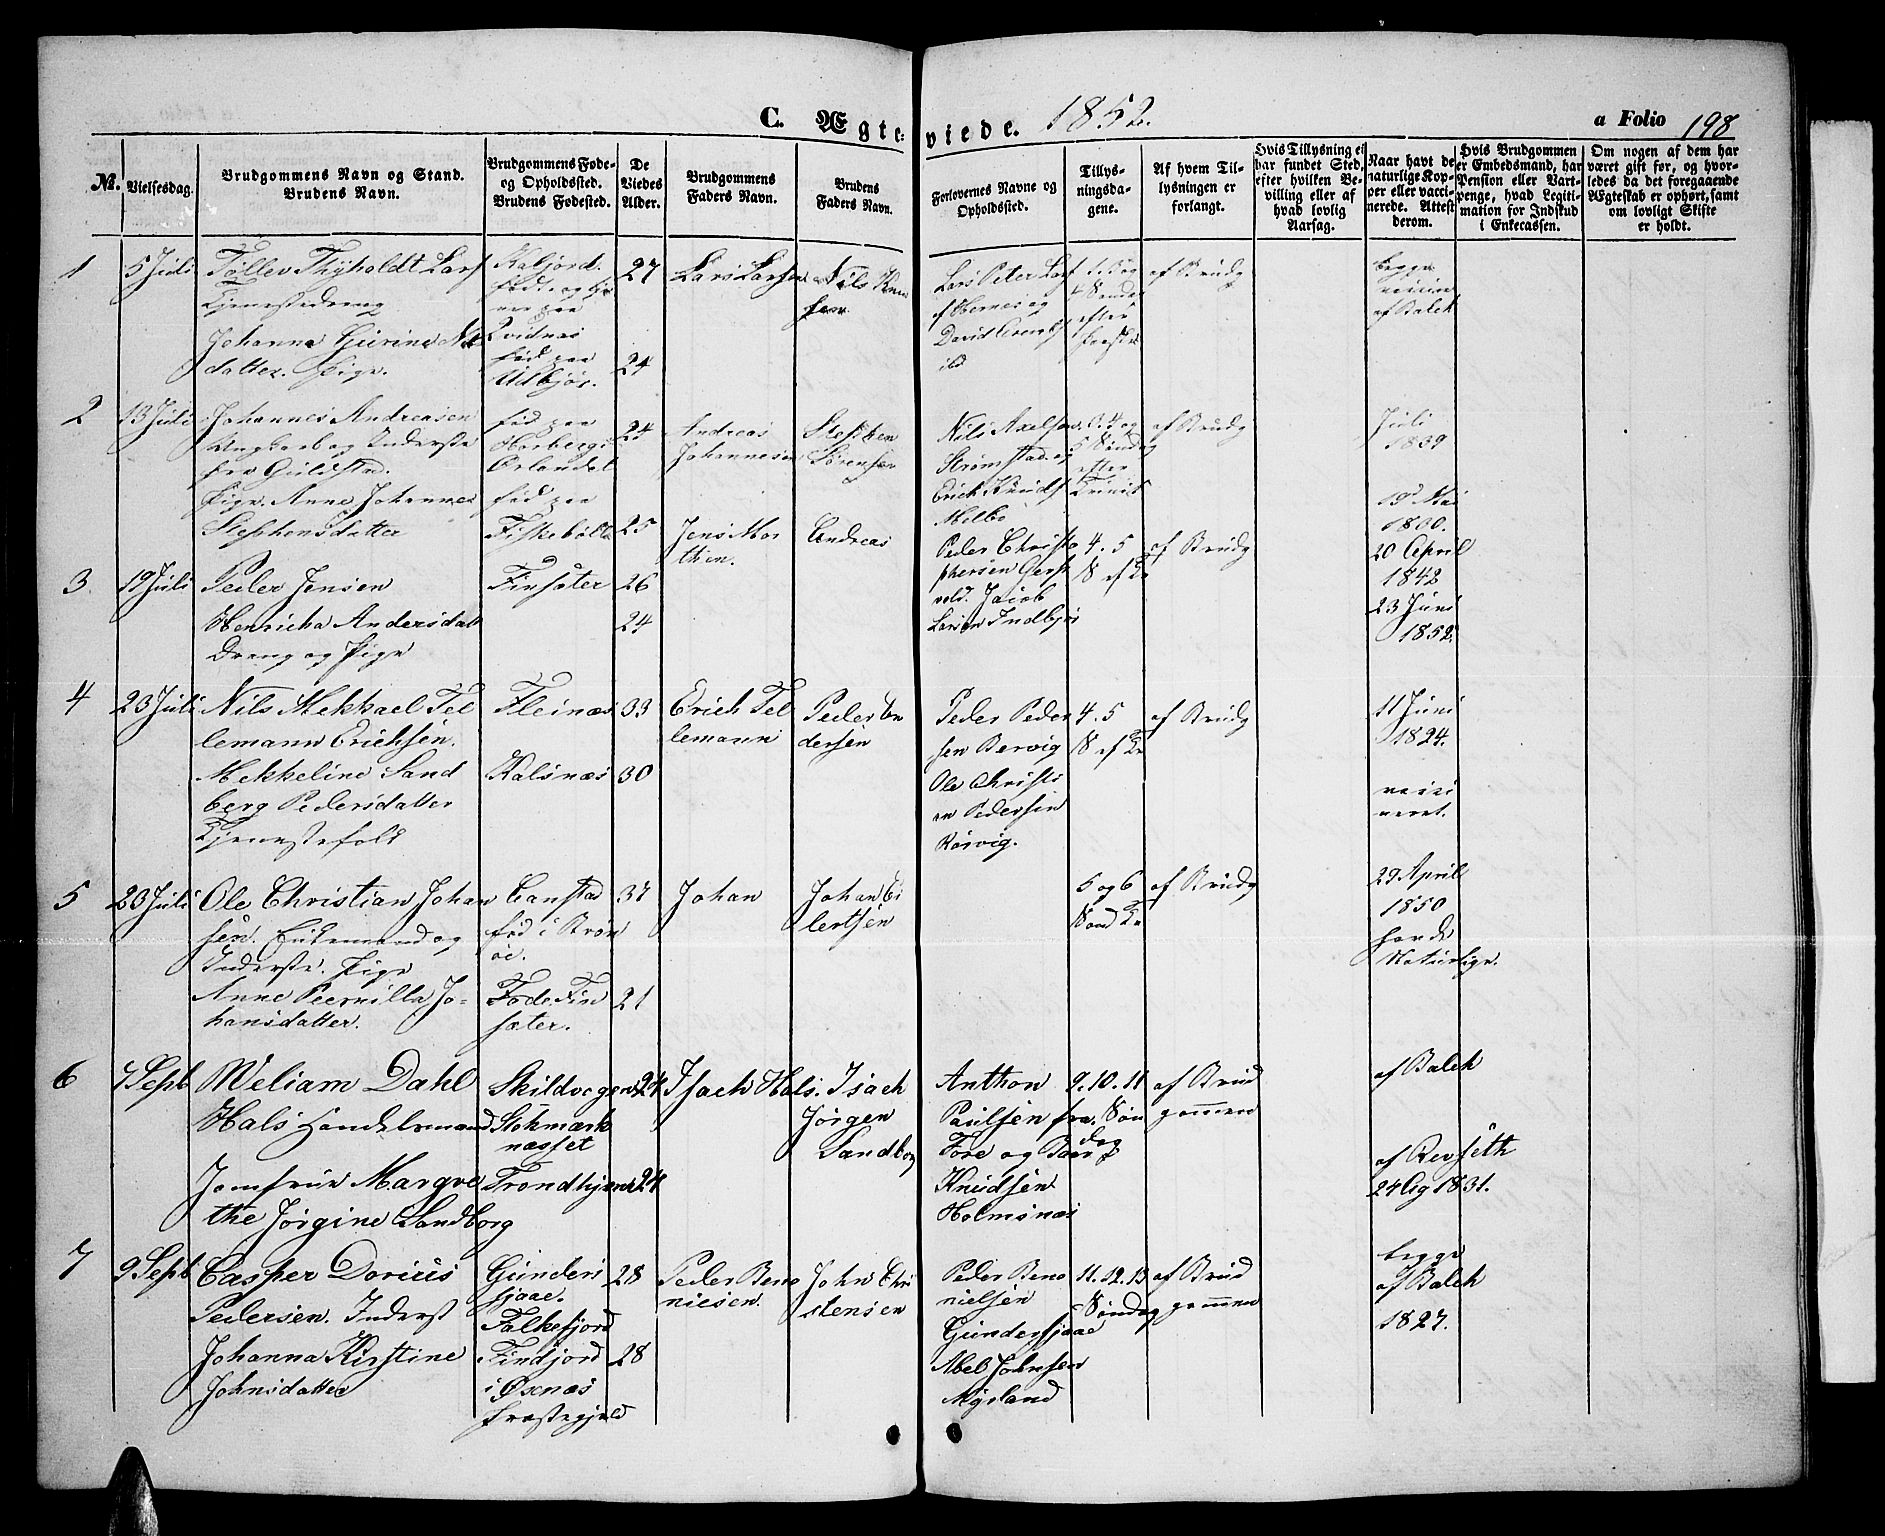 C. Ægteviede. 1852.
a Folio 198
№.
Vielsesdag.
Brudgommens Navn og Stand.
Brudens Navn.
Brudgommens Føde-
og Opholdssted.
Brudens Fødested.
De
Viedes
Alder.
Brudgommens
Faders Navn.
Brudens
Faders Navn.
Forlovernes Navne og
Opholdssted.
Tillys-
ningsda-
gene.
Af hvem Til-
lysningen er
forlangt.
Hvis Tillysning ei
har fundet Sted,
efter hvilken Be-
villing eller af
hvad lovlig
Aarsag.
Naar havt de
naturlige Kop-
per eller vacci-
nerede. Attest
derom.
Hvis Brudgommen
er Embedsmand, har
Pension eller Vart-
penge, hvad Legiti-
mation for Indskud
i Enkecassen.
Om nogen af dem har
været gift før, og hvor-
ledes da det foregaaende
Ægteskab er ophørt, samt
om lovligt Skifte
er holdt.
1
5 Juli
Tøllev Thyholdt Lars
Tjenestedreng
Johanna
datter. Pige.
født og
paa
Qvidnes
født paa
Ulbjør.
27
24
Lars Larsen
Nils
sen
Lars Peter Lars
og
David
4 Søndag
efter
af Brudg
begge
af Balch
2
13 Juli
Johannes Andreasen
Ungkarl og Inderste
fra Guldstad.
Pige. Anne Johanna
Stephensdatter
fød paa
Orlandet
fød paa
Fiskebøl
24
25
Andreas
Johannesen
Stephen
Sørensen
Nils Axelsen
Strømstad og
Erich Knuds
Melbo
3. 4 og
5 Søndag
efter
Trinit
af Brudg
Juli
1839
19 Mai
1830.
3.
19 Juli
Peder Jensen
Henricha Andersdatt
Dreng og Pige
Finsæter
26
24
Jens Mor
thien.
Andreas
Peder Christo
phersen
vold. Jacob
Larsen Indbjør
4. 5
S ef Tr
af Brudg
20 April
1842
23 Juni
1852.
4
23 Juli
Nils Mekkael Tel
lemann Erichsen.
Mekkeline Sand
berg Pedersdatter
Tjenestefolk
Fleinæs
Kalsnæs
33
30
Erich Tel
lemann
Peder An
dersen
Peder Peder
sen Bervig
Ole Christi
an Pedersen
Rørvig.
4. 5
S ef Tr
af Brudg
11 Juni
1824.
vacci
neret.
5
23 Juli
Ole Christian Johan
sen. Enkemand og
Inderste. Pige
Anne Peernilla Jo-
hansdatter.
Canstad
fød i Brøn
øe.
Føde Fin
sæter.
37
21
Johan
Johan Ei
lertsen
5 og 6
Sønd Tr
af Brudg
29 April
1850
havde
Naturlige.
6
7 Sept
Weliam Dahl
Hals Handelsmand
Jomfrue Margre
the Jørgine Sandborg
Skildvogens
Stokmark
næsset
Trondhjem
24
24
Isach Hals.
Isach
Jørgen
Sandborg
Anthon
Paulsen fra
Fore og Baar
Knudsen
Holmsnæs
9. 10. 11
Søn
dag
af Brud
gommen
af Balch
af Revseth
24 Aug 1831.
7
9 Sept
Casper Dorius
Pedersen. Inderst
Johanna Kirstine
Johnsdatter
Gunders
sjaae.
Falkefjord
Findjord
i Øxnæs
Præstegjeld
28
28
Peder Ben
nielsen.
John Chri
stensen
Peder Ben
nielsen
Gundersjaae
Abel Johnsen
Nyland
11. 12. 13
Søndag
af Brud
gommen
begge
af Balch
1827.